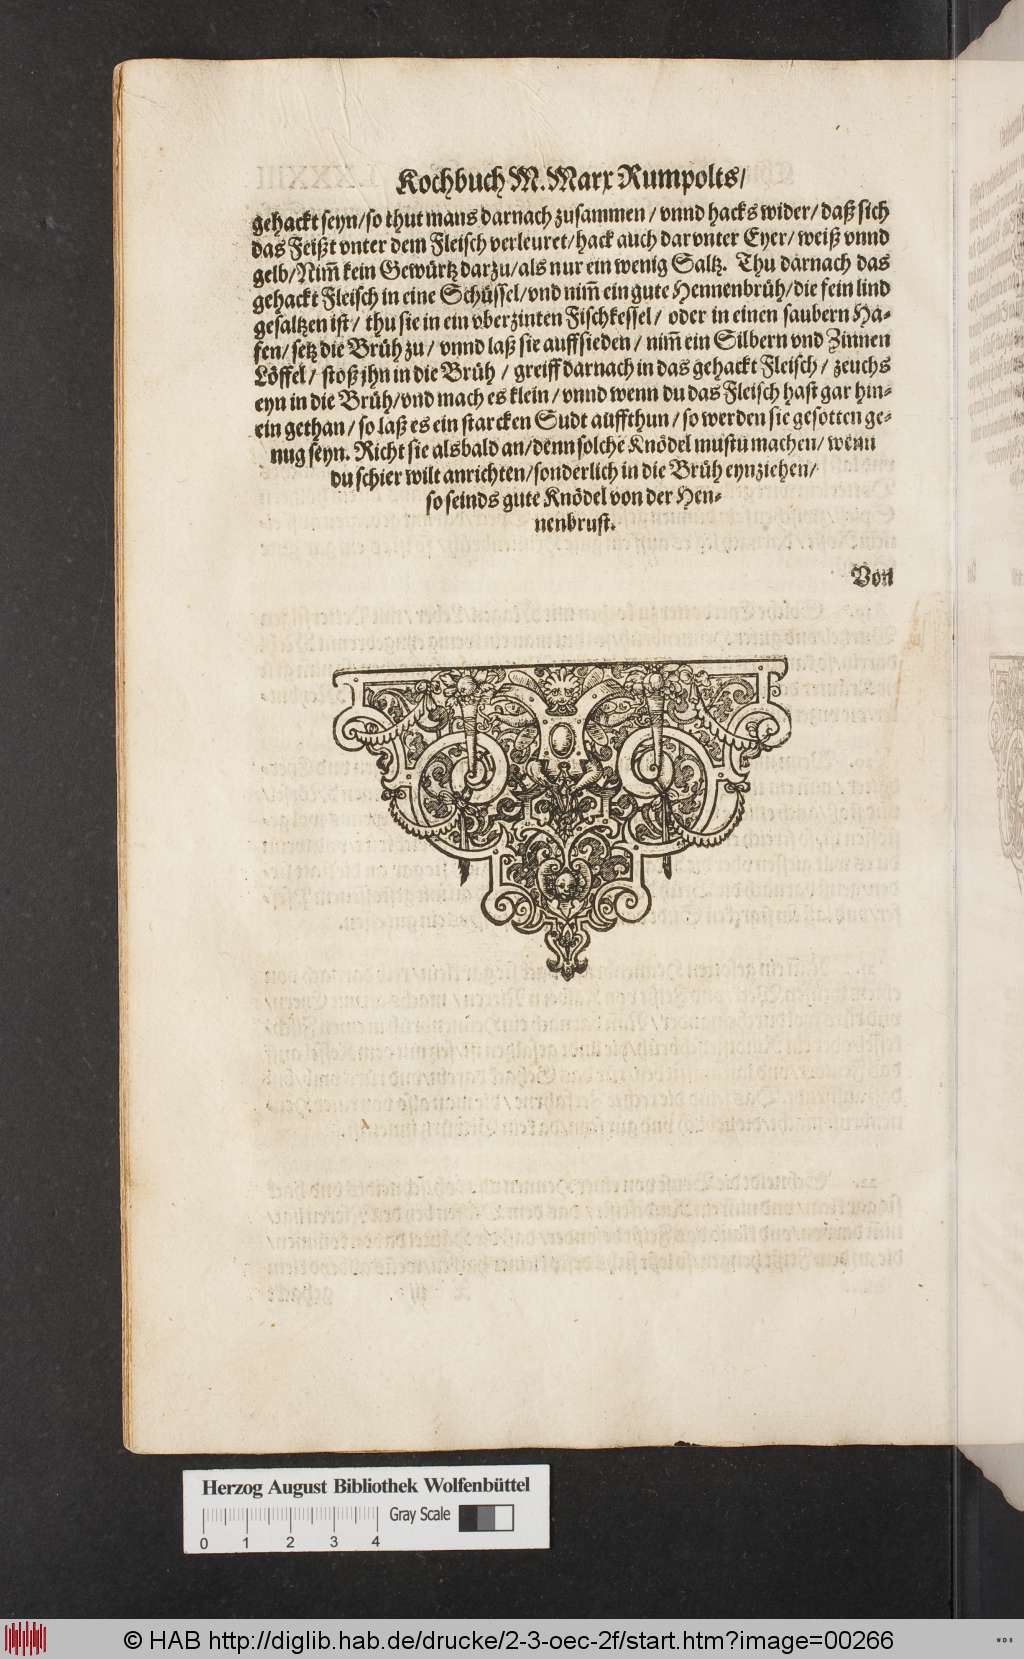 Kochbuch M. Marx Rumpolts/
gehackt seyn/so thut mans darnach zusammen/ vnnd hacks wider/ daß sich
das Feißt vnter dem Fleisch verleuret/hack auch darvnter Eyer/ weiß vnnd
gelb/Nim̃ kein Gewürtz darzu/als nur ein wenig Saltz. Thu darnach das
gehackt Fleisch in eine Schüssel/vnd nim̃ ein gute Hennenbrüh/die fein lind
gesaltzen ist/ thu sie in ein vberzinten Fischkessel/ oder in einen saubern Ha-
fen/ setz die Brüh zu/ vnnd laß sie auffsieden/ nim̃ ein Silbern vnd Zinnen
Löffel/ stoß jhn in die Brüh/ greiff darnach in das gehackt Fleisch/ zeuchs
eyn in die Brüh/vnd mach es klein/ vnnd wenn du das Fleisch hast gar hin-
ein gethan/ so laß es ein starcken Sudt auffthun/ so werden sie gesotten ge-
nug seyn. Richt sie alsbald an/denn solche Knödel mustu machen/ wenn
du schier wilt anrichten/sonderlich in die Brüh eynziehen/
so seinds gute Knödel von der Hen-
nenbrust.
Von
Herzog August Bibliothek Wolfenbüttel
Gray Scale
0 1 2 3 4
© HAB http://diglib.hab.de/drucke/2-3-oec-2f/start.htm?image=00266